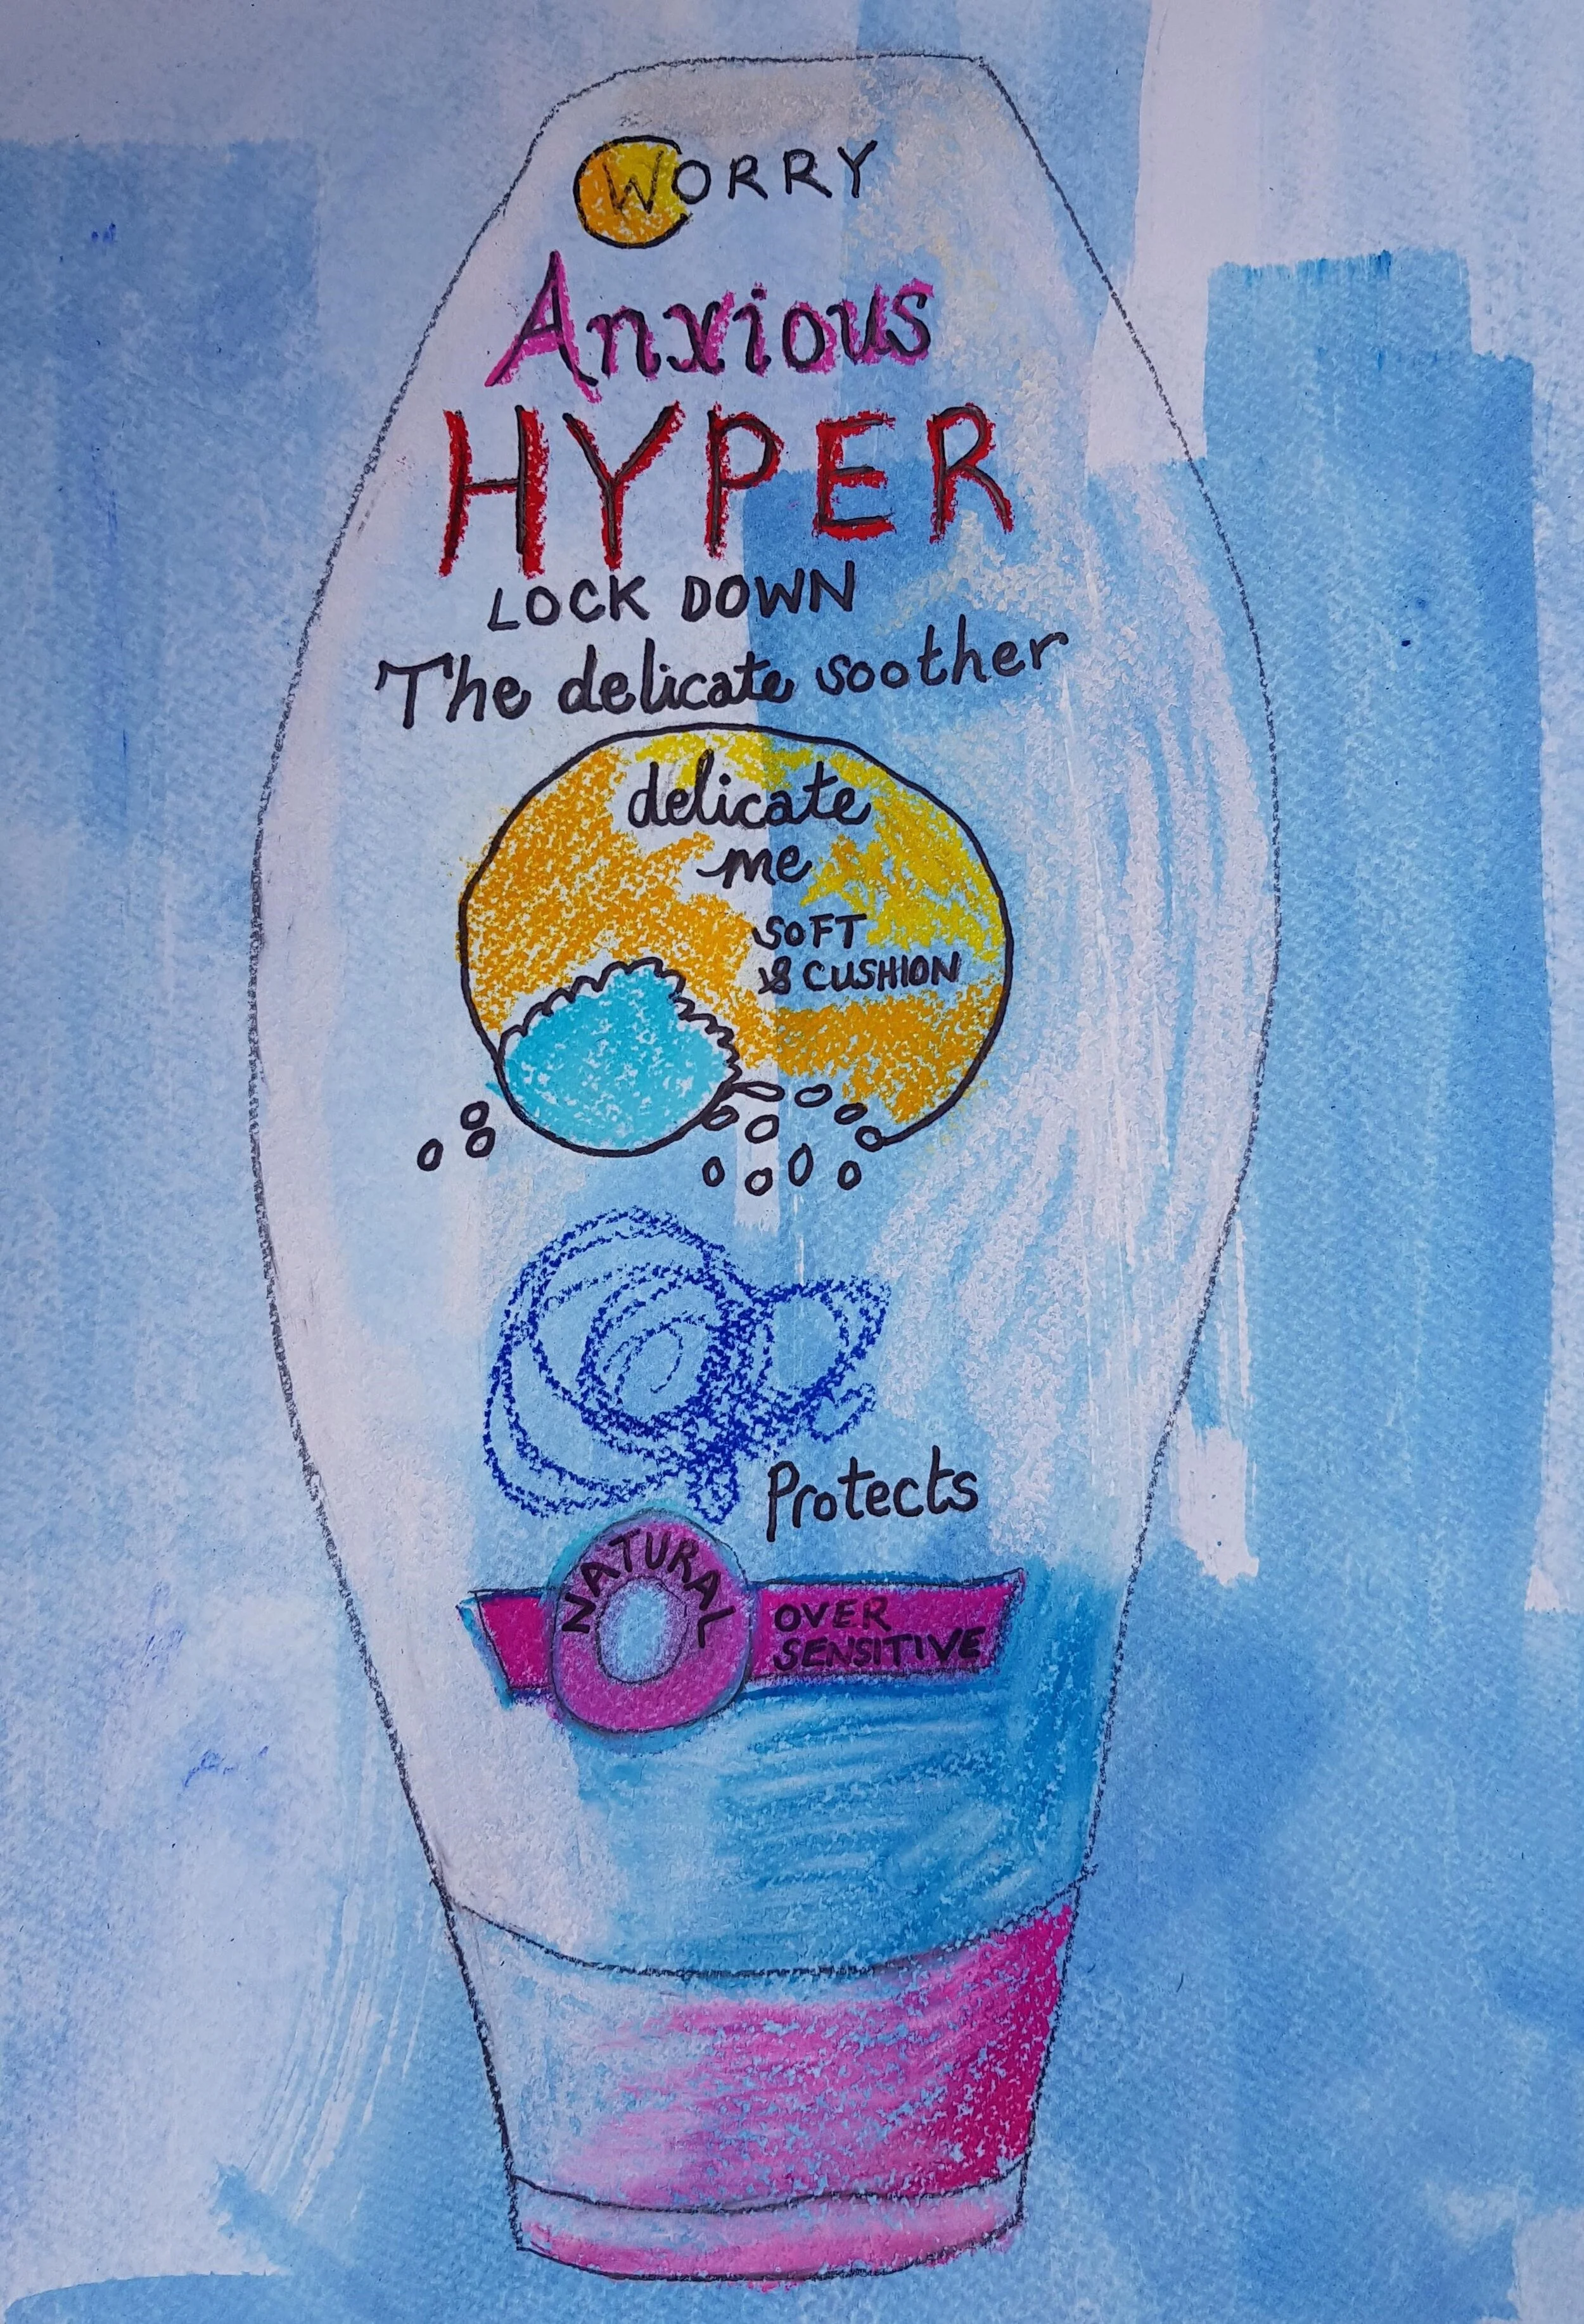 WORRY
Anxious
HYPER
LOCK DOWN
The delicate soother
delicate
me
SOFT
& CUSHION
Protects
NATURAL
OVER
SENSITIVE